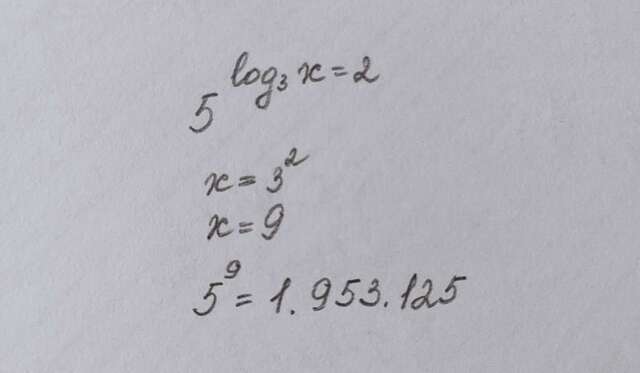 5^log₃ x = 2
x = 3²
x = 9
5⁹ = 1.953.125